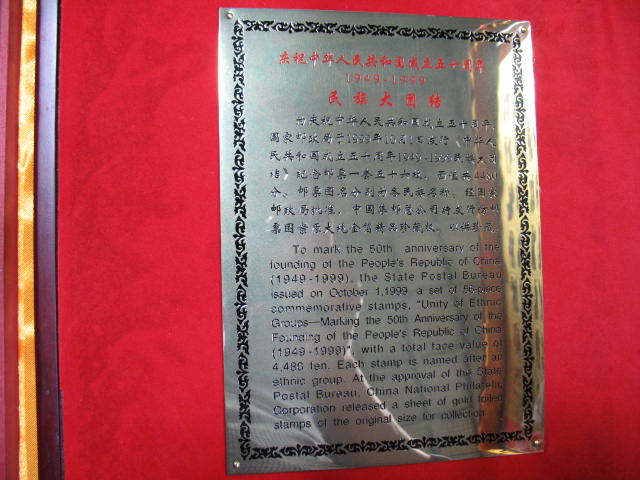 庆祝中华人民共和国成立五十周年
1949-1999
民族大团结
为庆祝中华人民共和国成立五十周年,
国家邮政局于1999年10月1日发行《中华人
民共和国成立五十周年1949-1999民族大团
结》纪念邮票一套五十六枚,面值共4480
分。邮票图名分别为各民族名称。经国家
邮政局批准,中国集邮总公司特发行仿邮
票图案原大纯金箔精品珍藏板,以供珍藏。
To mark the 50th anniversary of the
founding of the People's Republic of China
(1949-1999), the State Postal Bureau
issued on October 1,1999 a set of 56-piece
commemorative stamps, "Unity of Ethnic
Groups—Marking the 50th Anniversary of the
Founding of the People's Republic of China
(1949-1999)", with a total face value of
4,480 fen. Each stamp is named after an
ethnic group. At the approval of the State
Postal Bureau, China National Philatelic
Corporation released a sheet of gold foiled
stamps of the original size for collection.